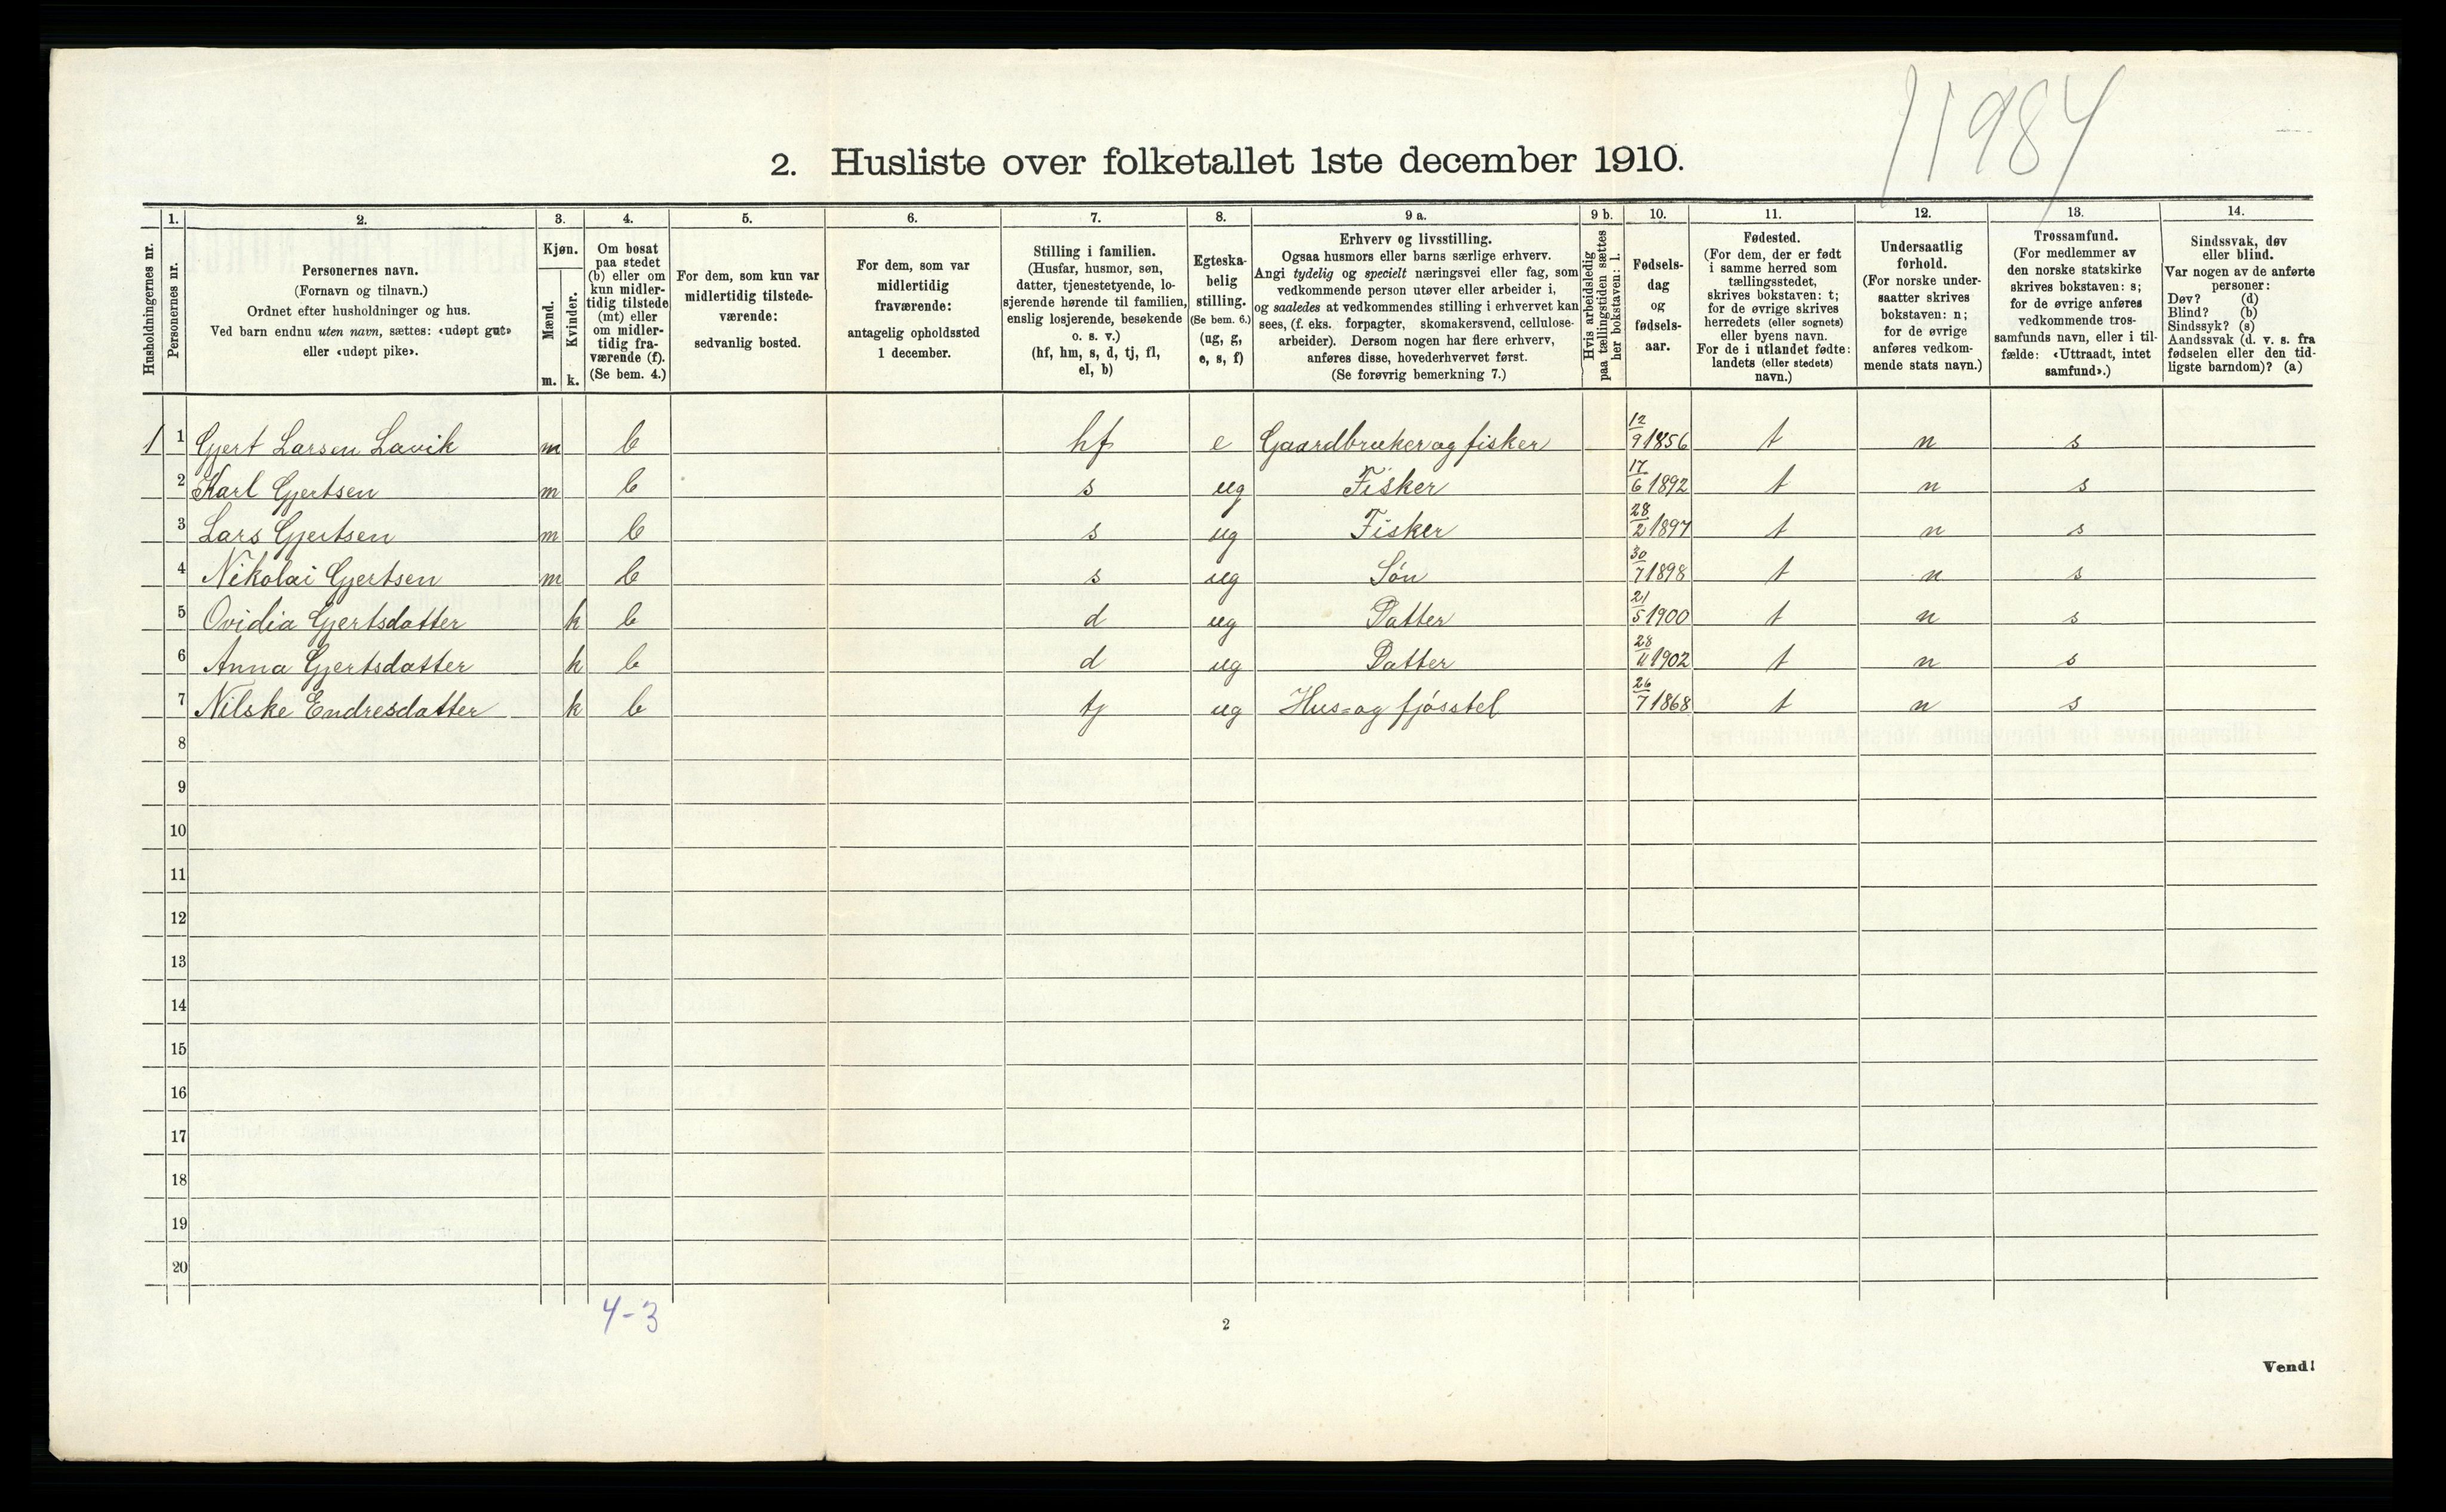 11984
2. Husliste over folketallet 1ste december 1910.
Husholdningernes nr.
1. Personernes nr.
2. Personernes navn. (Fornavn og tilnavn.) Ordnet efter husholdninger og hus. Ved barn endnu uten navn, sættes: «udøpt gut» eller «udøpt pike».
3. Kjøn. Mænd. m. Kvinder. k.
4. Om bosat paa stedet (b) eller om kun midlertidig tilstede (mt) eller om midlertidig fraværende (f). (Se bem. 4.)
5. For dem, som kun var midlertidig tilstedeværende: sedvanlig bosted.
6. For dem, som var midlertidig fraværende: antagelig opholdssted 1 december.
7. Stilling i familien. (Husfar, husmor, søn, datter, tjenestetyende, losjerende hørende til familien, enslig losjerende, besøkende o. s. v.) (hf, hm, s, d, tj, fl, el, b)
8. Egteskabelig stilling. (Se bem. 6.) (ug, g, e, s, f)
9 a. Erhverv og livsstilling. Ogsaa husmors eller barns særlige erhverv. Angi tydelig og specielt næringsvei eller fag, som vedkommende person utøver eller arbeider i, og saaledes at vedkommendes stilling i erhvervet kan sees, (f. eks. forpagter, skomakersvend, cellulosearbeider). Dersom nogen har flere erhverv, anføres disse, hovederhvervet først. (Se forøvrig bemerkning 7.)
9 b. Hvis arbeidsledig paa tællingstiden sættes her bokstaven: l.
10. Fødselsdag og fødselsaar.
11. Fødested. (For dem, der er født i samme herred som tællingsstedet, skrives bokstaven: t; for de øvrige skrives herredets (eller sognets) eller byens navn. For de i utlandet fødte: landets (eller stedets) navn.)
12. Undersaatlig forhold. (For norske undersaatter skrives bokstaven: n; for de øvrige anføres vedkommende stats navn.)
13. Trossamfund. (For medlemmer av den norske statskirke skrives bokstaven: s; for de øvrige anføres vedkommende trossamfunds navn, eller i tilfælde: «Uttraadt, intet samfund».)
14. Sindssvak, døv eller blind. Var nogen av de anførte personer: Døv? (d) Blind? (b) Sindssyk? (s) Aandssvak (d. v. s. fra fødselen eller den tidligste barndom)? (a)
1 1 Gjert Larsen Lavik m b hf e Gaardbruker og fisker 12/9 1856 t n s
2 Karl Gjertsen m b s ug Fisker 17/6 1892 t n s
3 Lars Gjertsen m b s ug Fisker 28/2 1897 t n s
4 Nikolai Gjertsen m b s ug Søn 30/7 1898 t n s
5 Ovidia Gjertsdatter k b d ug Datter 21/5 1900 t n s
6 Anna Gjertsdatter k b d ug Datter 28/11 1902 t n s
7 Nilske Endresdatter k b tj ug Hus- og fjøsstel 26/7 1868 t n s
8
9
10
11
12
13
14
15
16
17
18
19
20
4-3
2
Vend!